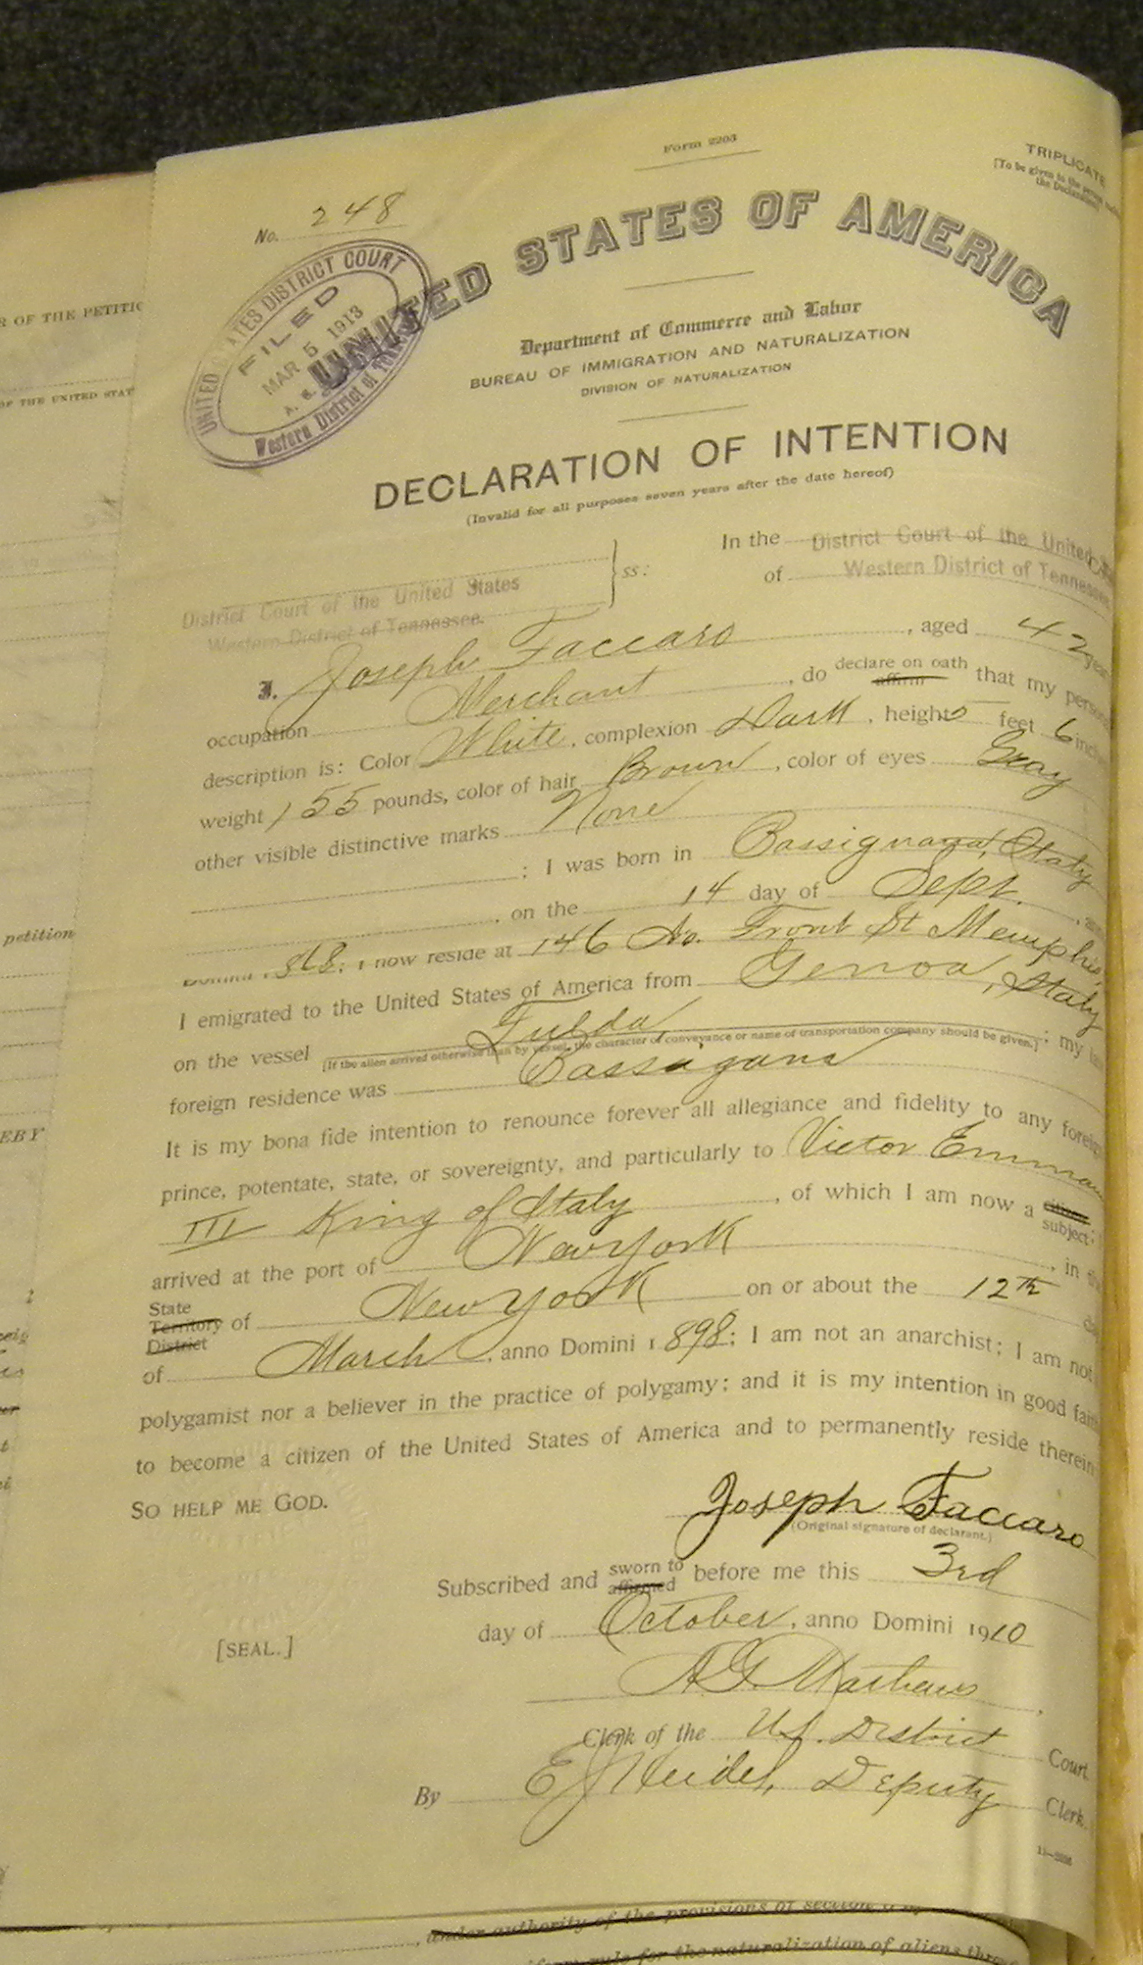 Form 2203
TRIPLICATE
[To be given to the person
the Declaration]
No. 248
UNITED STATES OF AMERICA
UNITED STATES DISTRICT COURT
FILED
MAR 5 1913
Western District of
Department of Commerce and Labor
BUREAU OF IMMIGRATION AND NATURALIZATION
DIVISION OF NATURALIZATION
DECLARATION OF INTENTION
(Invalid for all purposes seven years after the date hereof)
District Court of the United States
Western District of Tennessee.
ss:
In the District Court of the United
of Western District of Tennessee
I, Joseph Faccaro, aged 42 year
occupation Merchant, do declare on oath affirm that my person
description is: Color White, complexion Dark, height 5 feet 6 inch
weight 155 pounds, color of hair Brown, color of eyes Gray
other visible distinctive marks None
; I was born in Bassignana, Italy
, on the 14 day of Sept.
868; I now reside at 146 No. Front St Memphis
I emigrated to the United States of America from Genoa, Italy
on the vessel Fulda ; my
[If the alien arrived otherwise than by vessel, the character of conveyance or name of transportation company should be given.]
foreign residence was Bassagana
It is my bona fide intention to renounce forever all allegiance and fidelity to any foreig
prince, potentate, state, or sovereignty, and particularly to Victor Emman
III King of Italy, of which I am now a citizen subject;
arrived at the port of New York, in the
State Territory District of New York on or about the 12th
of March, anno Domini 1898; I am not an anarchist; I am not
polygamist nor a believer in the practice of polygamy; and it is my intention in good fait
to become a citizen of the United States of America and to permanently reside therein
SO HELP ME GOD.
Joseph Faccaro
(Original signature of declarant.)
Subscribed and sworn to affirmed before me this 3rd
day of October, anno Domini 1910
[SEAL.]
A G Mathews
Clerk of the U.S. District Court.
By E J Heidel, Deputy Clerk.
R OF THE PETITIO
OF THE UNITED STAT
petition
EBY
under authority of the provisions of section
for the naturalization of aliens